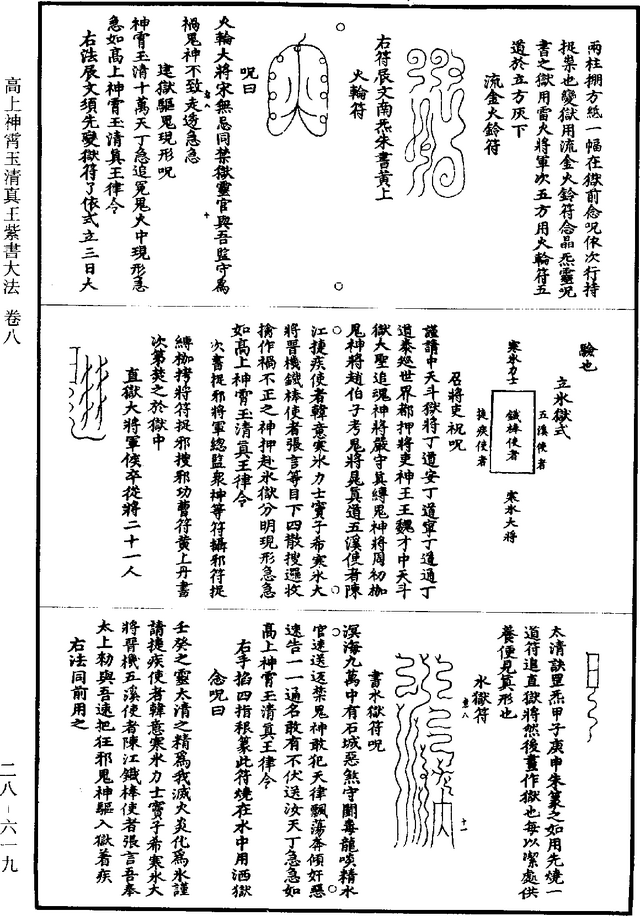 高上神霄玉清真王紫書大法 卷八
二八—六一九
兩柱掤方㡧一幅在獄前念呪依次行持
捉祟也變獄用流金火鈴符念晶炁靈呪
書之獄用雷火將軍次五方用火輪符五
道於五方灰下
流金火鈴符
右符辰文南炁朱書黃上
火輪符
呪曰
火輪大將宋無忌同禁獄靈官與吾監守為
禍鬼神不致走透急急
建獄驅鬼現形呪
神霄玉清十萬天丁急追冤鬼火中現形急
急如高上神霄玉清真王律令
右法辰文須先變獄符了依式立三日大
驗也
立氷獄式
寒氷力士
五溪使者
鐵棒使者
捷疾使者
寒氷大將
召將吏祝呪
謹請中天斗獄將丁道安丁道寧丁道通丁
道泰巡世界都押將吏神王王魏才中天斗
獄大聖追魂神將嚴守真縛鬼神將周初枷
鬼神將趙伯子考鬼將晁真道五溪使者陳
江捷疾使者韓意寒氷力士竇子希寒氷大
將晉機鐵棒使者張言等目下四散搜邏收
擒作禍不正之神押赴氷獄分明現形急急
如高上神霄玉清真王律令
次書捉邪將軍總監衆神等符攝邪符捉
縛枷拷將符捉邪搜邪功曹符黃上丹書
次第焚之於獄中
直獄大將軍候卒從將二十一人
太清訣罡炁甲子庚申朱篆之如用先燒一
道符追直獄將然後畫作獄也每以潔處供
養便見真形也
氷獄符
書氷獄符呪
溟海九萬中有石城惡煞守闗毒龍啖精水
官速送逐禁鬼神敢犯天律飄蕩奔傾奸惡
速告一一通名敢有不伏送汝天丁急急如
高上神霄玉清真王律令
右手掐四指根篆此符燒在水中用洒獄
念呪曰
壬癸之靈太清之精為我滅火炎化為氷謹
請捷疾使者韓意寒氷力士竇子希寒氷大
將晉機五溪使者陳江鐵棒使者張言吾奉
太上勑與吾速把狂邪鬼神驅入獄着疾
右法同前用之